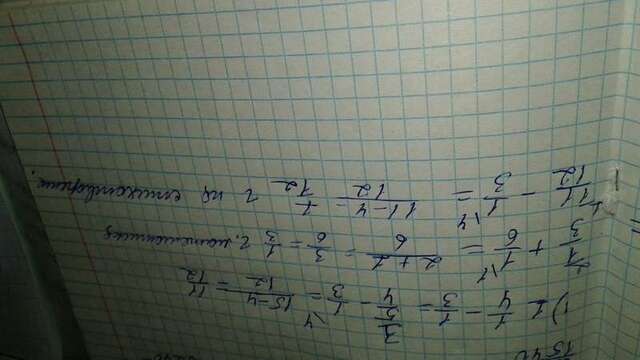 1540
1) 1 1/4 - 1/3 = 5/4 - 1/3 = 15-4/12 = 11/12
1/3 + 1/6 = 2+1/6 = 3/6 = 1/3 г. математика
11/12 - 1/3 = 11-4/12 = 7/12 г на стихотворение.